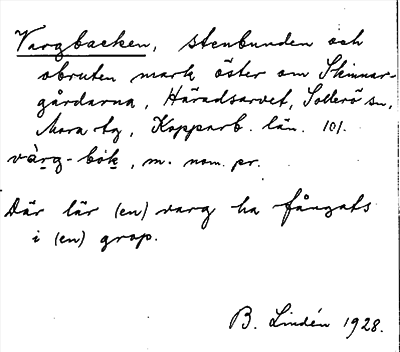 Vargbacken, stenbunden och
obruten mark öster om Skinnar-
gårdarna, Häradsarvet, Sollerö sn,
Mora tg, Kopparb. län. 101.
va̱rg-bo̱k, m. nom. pr.
Där lär (en) varg ha fångats
i (en) grop.
B. Lindén 1928.